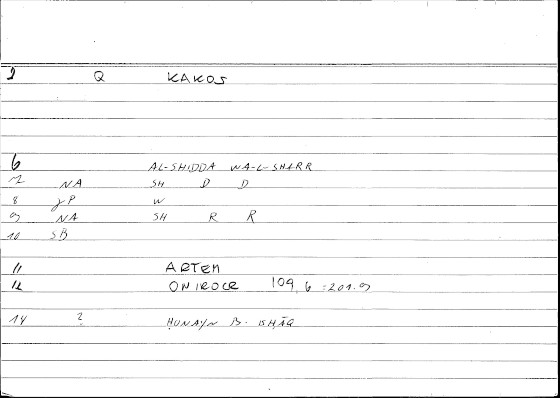 1 Q KAKOS
6 AL-SHIDDA WA-L-SHARR
7 NA SH D D
8 γP W
9 NA SH R R
10 SB
11 ARTEM
12 ONIROCR 109,6 = 201.9
14 ? ḤUNAYN B. ISḤĀQ